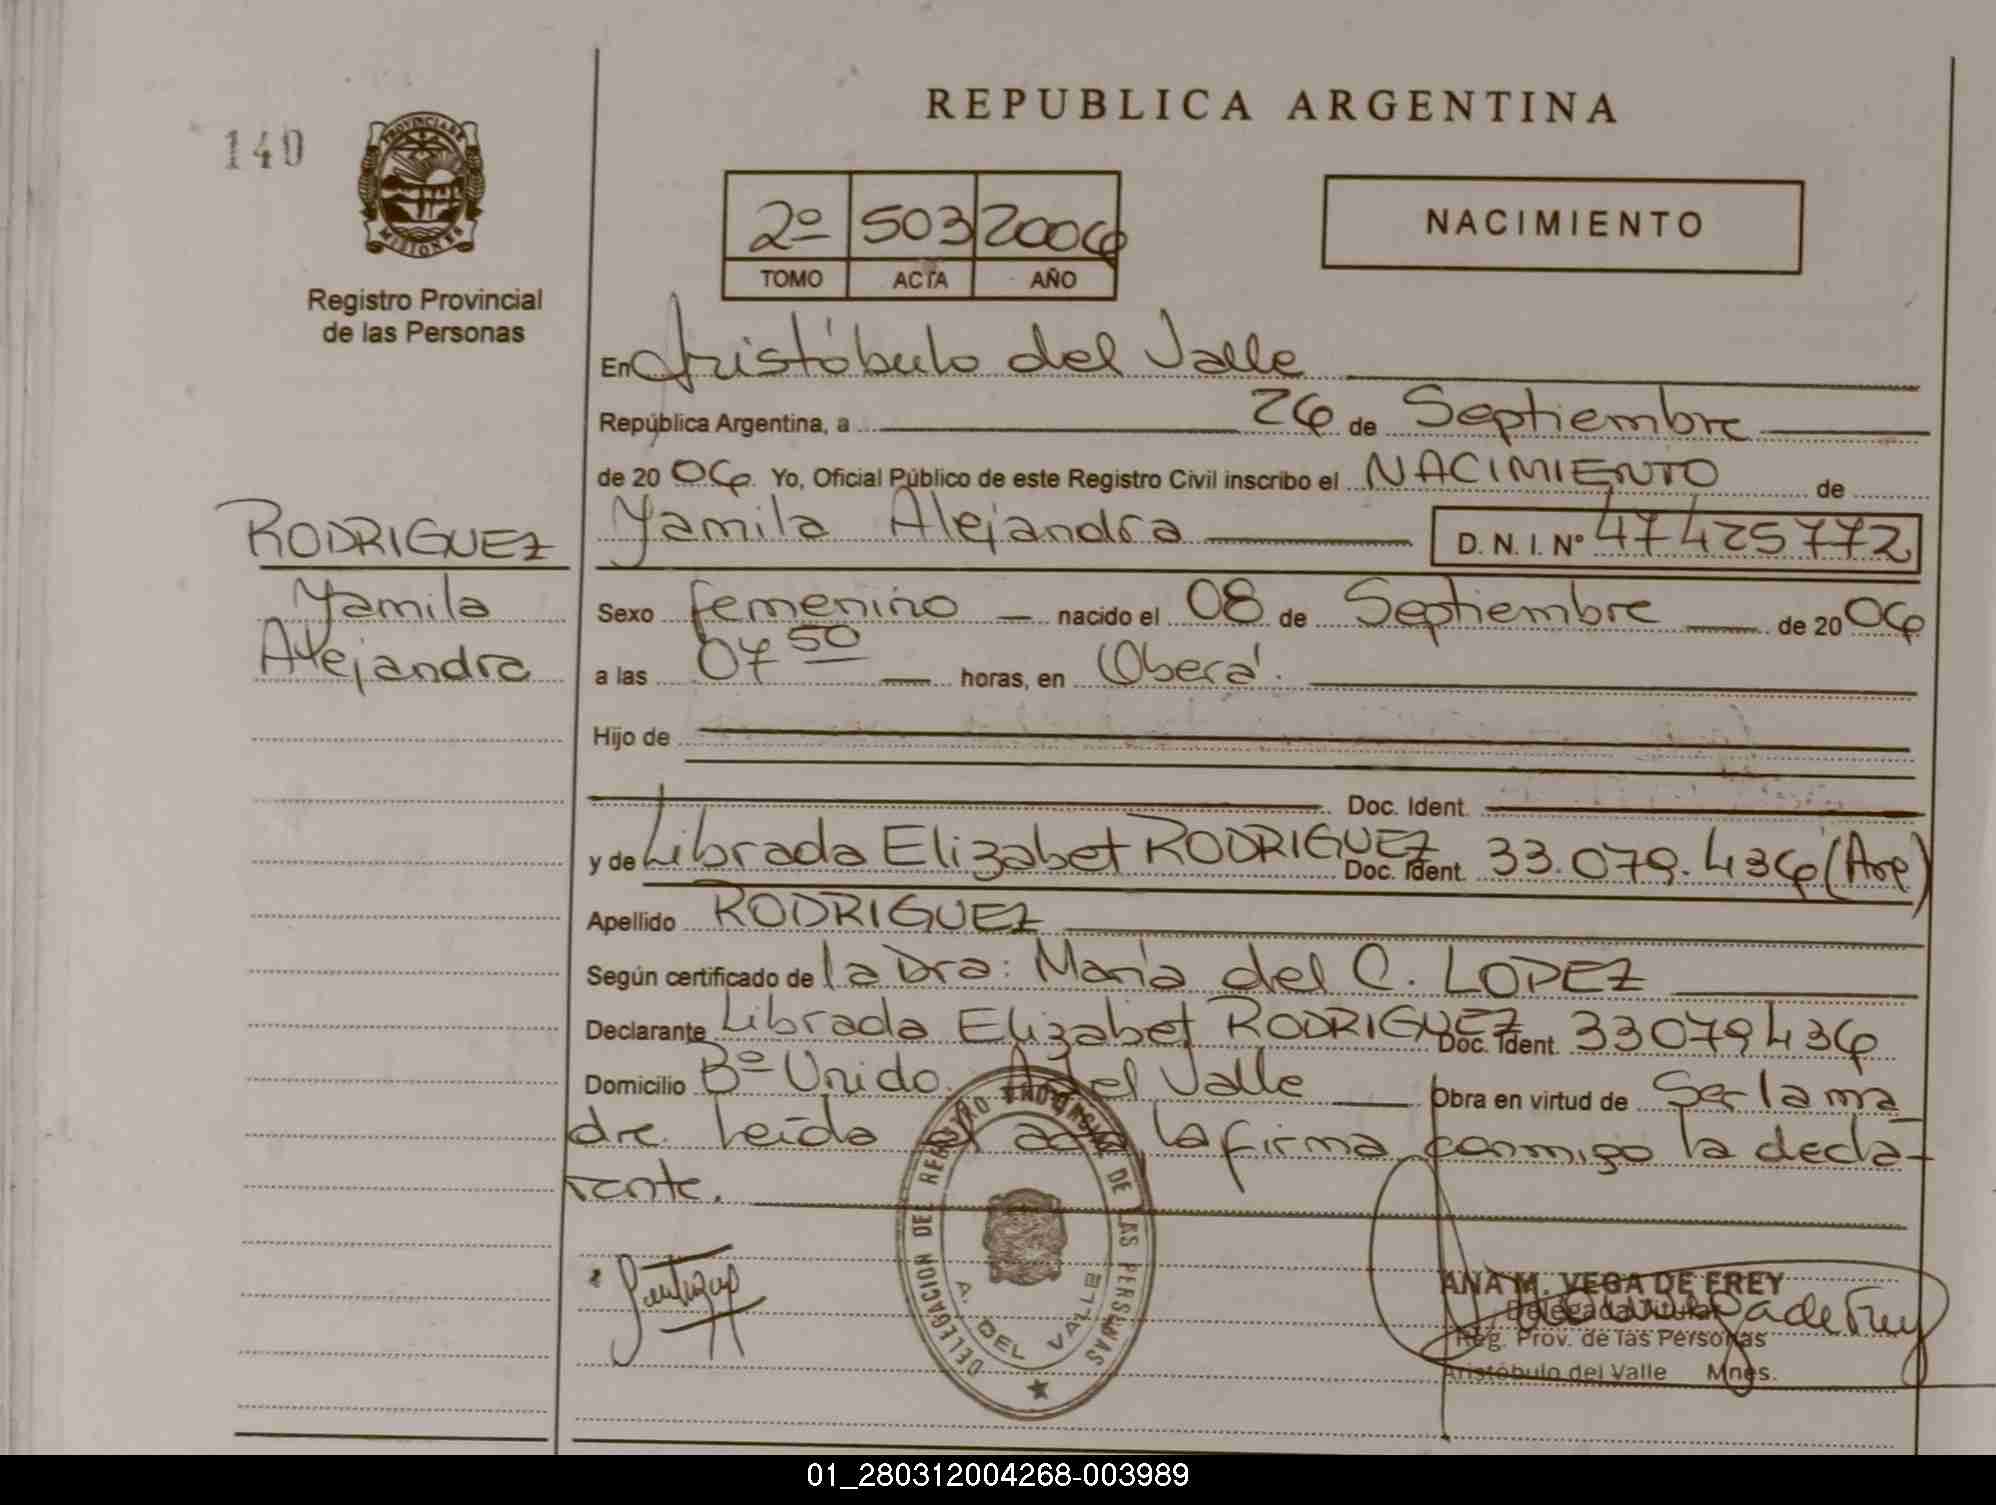 REPUBLICA ARGENTINA
140
PROVINCIA DE MISIONES
Registro Provincial
de las Personas
2º 503 2006
TOMO ACTA AÑO
NACIMIENTO
En Aristóbulo del Valle
República Argentina, a 26 de Septiembre
de 20 06 Yo, Oficial Público de este Registro Civil inscribo el NACIMIENTO de
RODRIGUEZ
Yamila
Alejandra
Yamila Alejandra D. N. I. Nº 47425772
Sexo femenino nacido el 08 de Septiembre de 20 06
a las 07 50 horas, en Oberá.
Hijo de
Doc. Ident.
y de Librada Elizabet RODRIGUEZ Doc. Ident. 33.079.436 (Arg)
Apellido RODRIGUEZ
Según certificado de la Dra: María del C. LOPEZ
Declarante Librada Elizabet RODRIGUEZ Doc. Ident. 33079436
Domicilio Bº Unido. A. del Valle Obra en virtud de Ser la ma
dre. Leída el acta la firma conmigo la decla-
rante.
DELEGACION DEL REGISTRO PROVINCIAL DE LAS PERSONAS
A. DEL VALLE
ANA M. VEGA DE FREY
Delegada Titular
Reg. Prov. de las Personas
Aristóbulo del Valle Mnes.
01_280312004268-003989